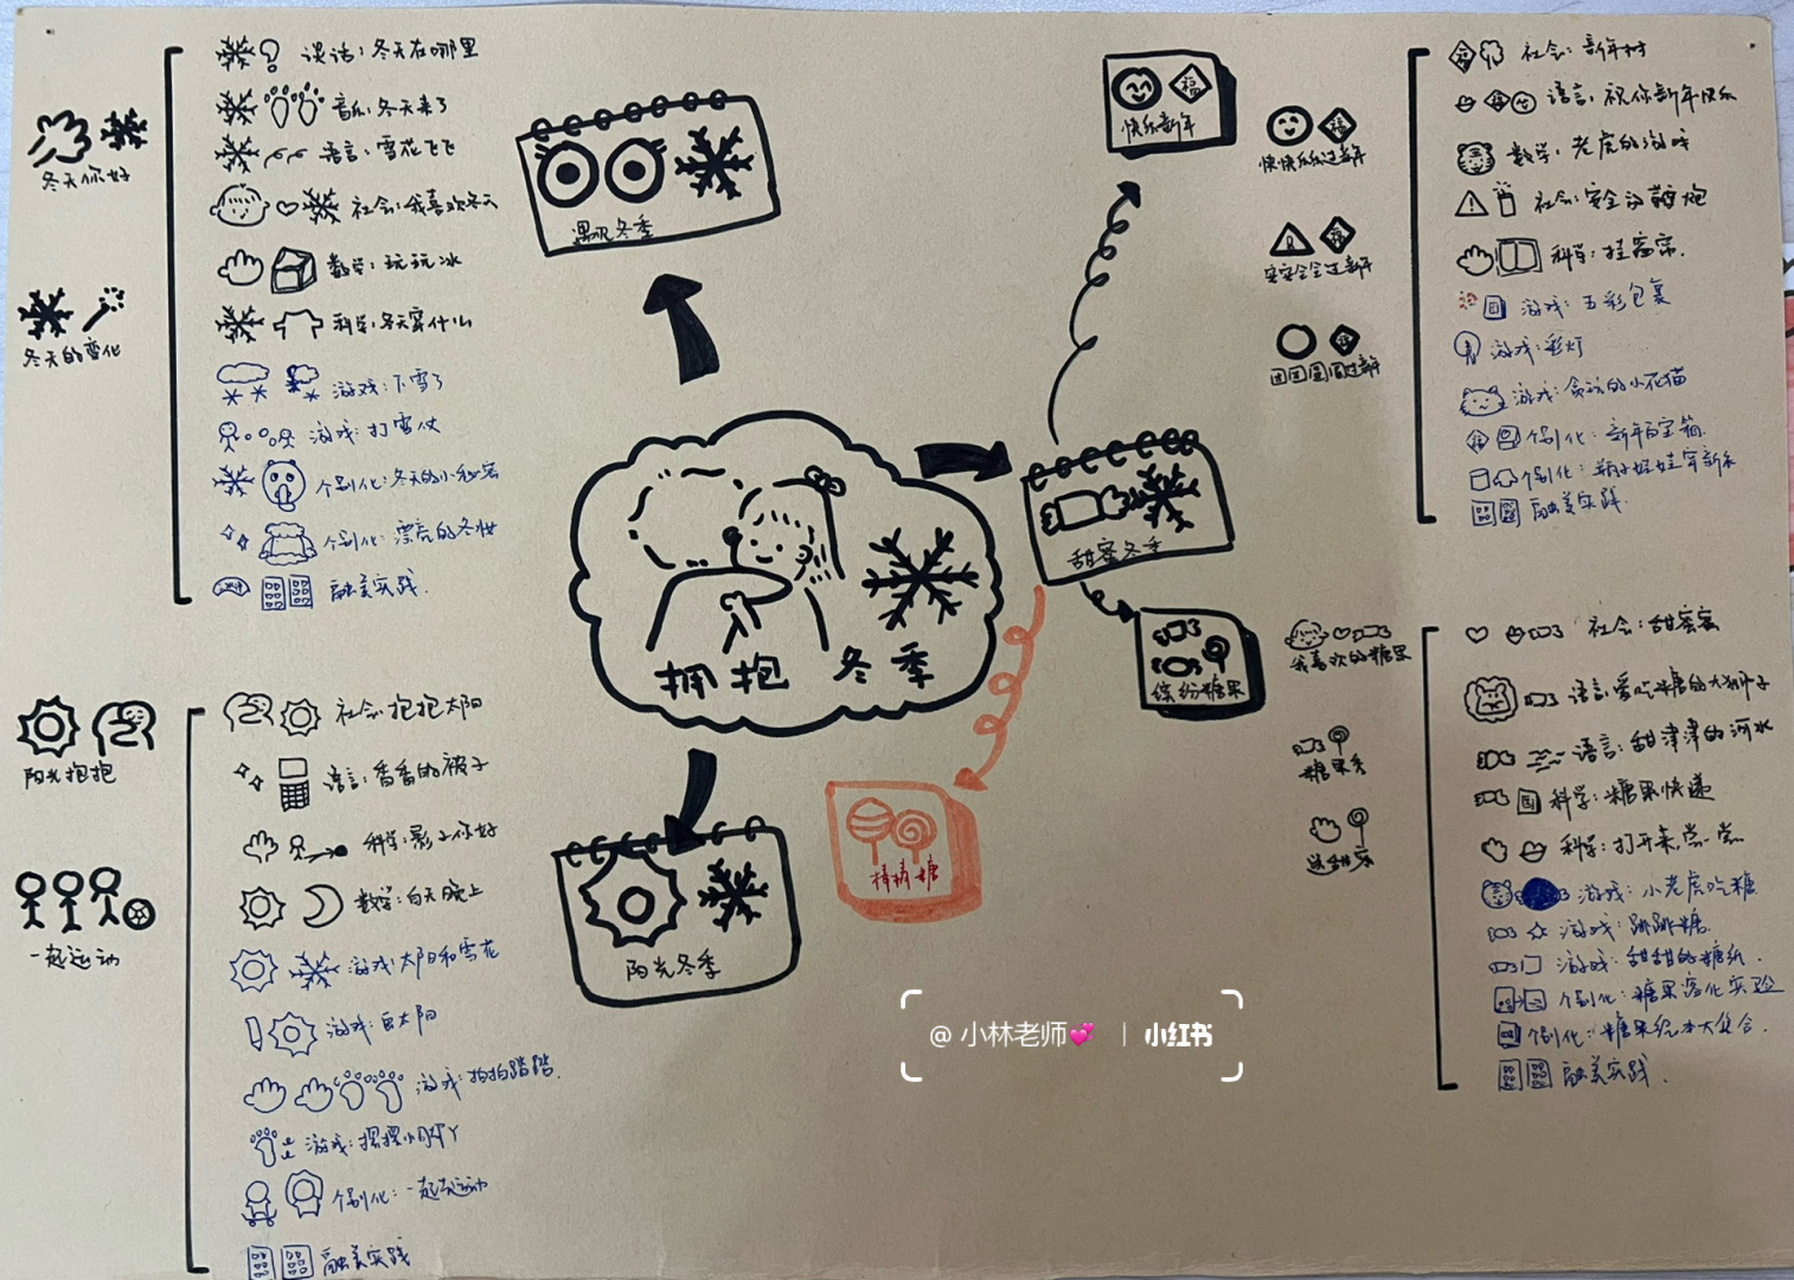 冬天你好
冬天的变化
谈话:冬天在哪里
音乐:冬天来了
语言:雪花飞飞
社会:我喜欢冬天
数学:玩玩冰
科学:冬天穿什么
游戏:下雪了
游戏:打雪仗
个别化:冬天的小秘密
个别化:漂亮的冬妆
融美实践.
遇见冬季
拥抱 冬季
阳光抱抱
一起运动
社会:抱抱太阳
语言:香香的被子
科学:影子你好
数学:白天晚上
游戏:太阳和雪花
游戏:画太阳
游戏:拍拍踏踏.
游戏:摆摆小脚丫
个别化:一起运动
融美实践
阳光冬季
甜蜜冬季
福
快乐新年
福
快快乐乐过新年
福
安安全全过新年
福
团团圆圆过新年
福
社会:新年树
福
语言:祝你新年快乐
数学:老虎的游戏
社会:安全放鞭炮
科学:挂窗帘.
游戏:五彩包裹
游戏:彩灯
游戏:贪玩的小花猫
福
个别化:新年百宝箱.
个别化:瓶子娃娃穿新衣
融美实践.
缤纷糖果
棒棒糖
我喜欢的糖果
糖果秀
社会:甜蜜蜜
语言:爱吃糖的大狮子
语言:甜津津的河水
科学:糖果快递
科学:打开来,尝一尝
游戏:小老虎吃糖
游戏:跳跳糖.
游戏:甜甜的糖纸.
个别化:糖果溶化实验
个别化:糖果绘本大集合.
融美实践.
@ 小林老师💕 | 小红书